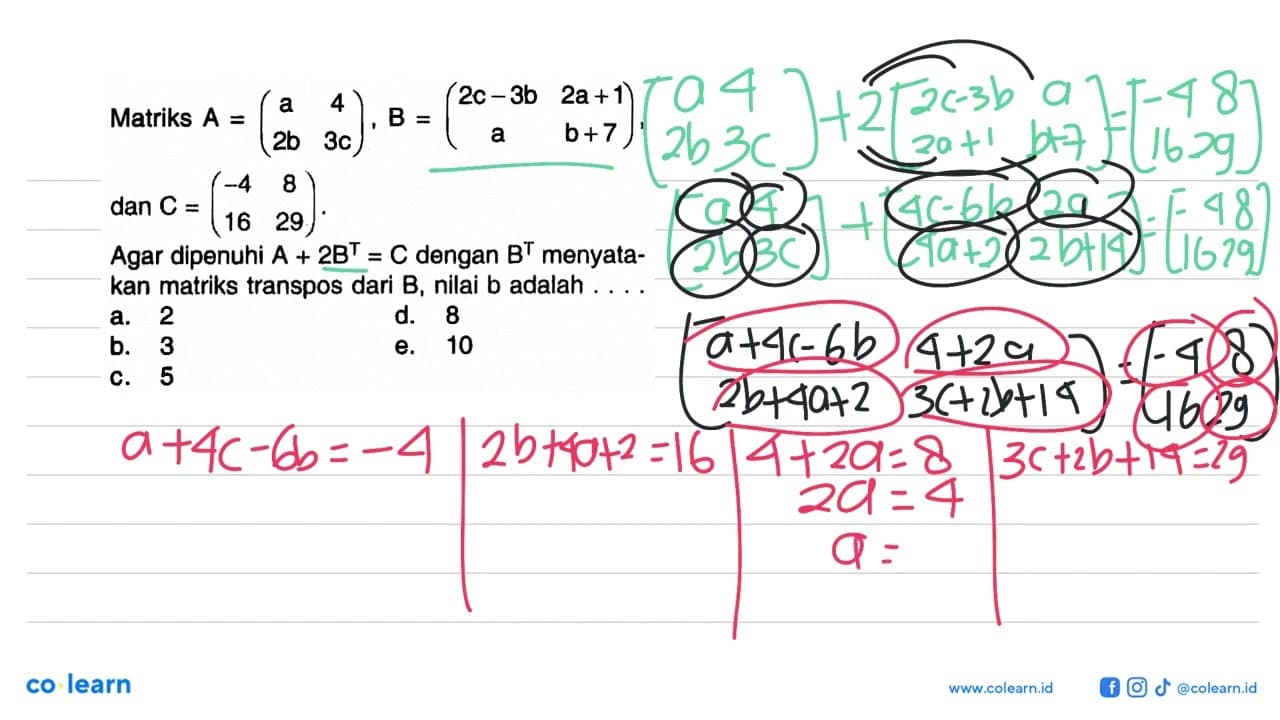 Matriks A = (a 4 2b 3c), B = (2c – 3b 2a + 1 a b + 7),
dan C = (–4 8 16 29).
Agar dipenuhi A + 2Bᵀ = C dengan Bᵀ menyata-
kan matriks transpos dari B, nilai b adalah . . . .
a. 2 d. 8
b. 3 e. 10
c. 5
[a 4 2b 3c] + 2[2c-3b a 2a+1 b+7] = [-4 8 16 29]
[a 4 2b 3c] + [4c-6b 2a 4a+2 2b+14] = [-4 8 16 29]
[a+4c-6b 4+2a 2b+4a+2 3c+2b+14] = [-4 8 16 29]
a+4c-6b=-4 | 2b+4a+2=16 | 4+2a=8 | 3c+2b+14=29
2a=4
a=
co learn
www.colearn.id @colearn.id